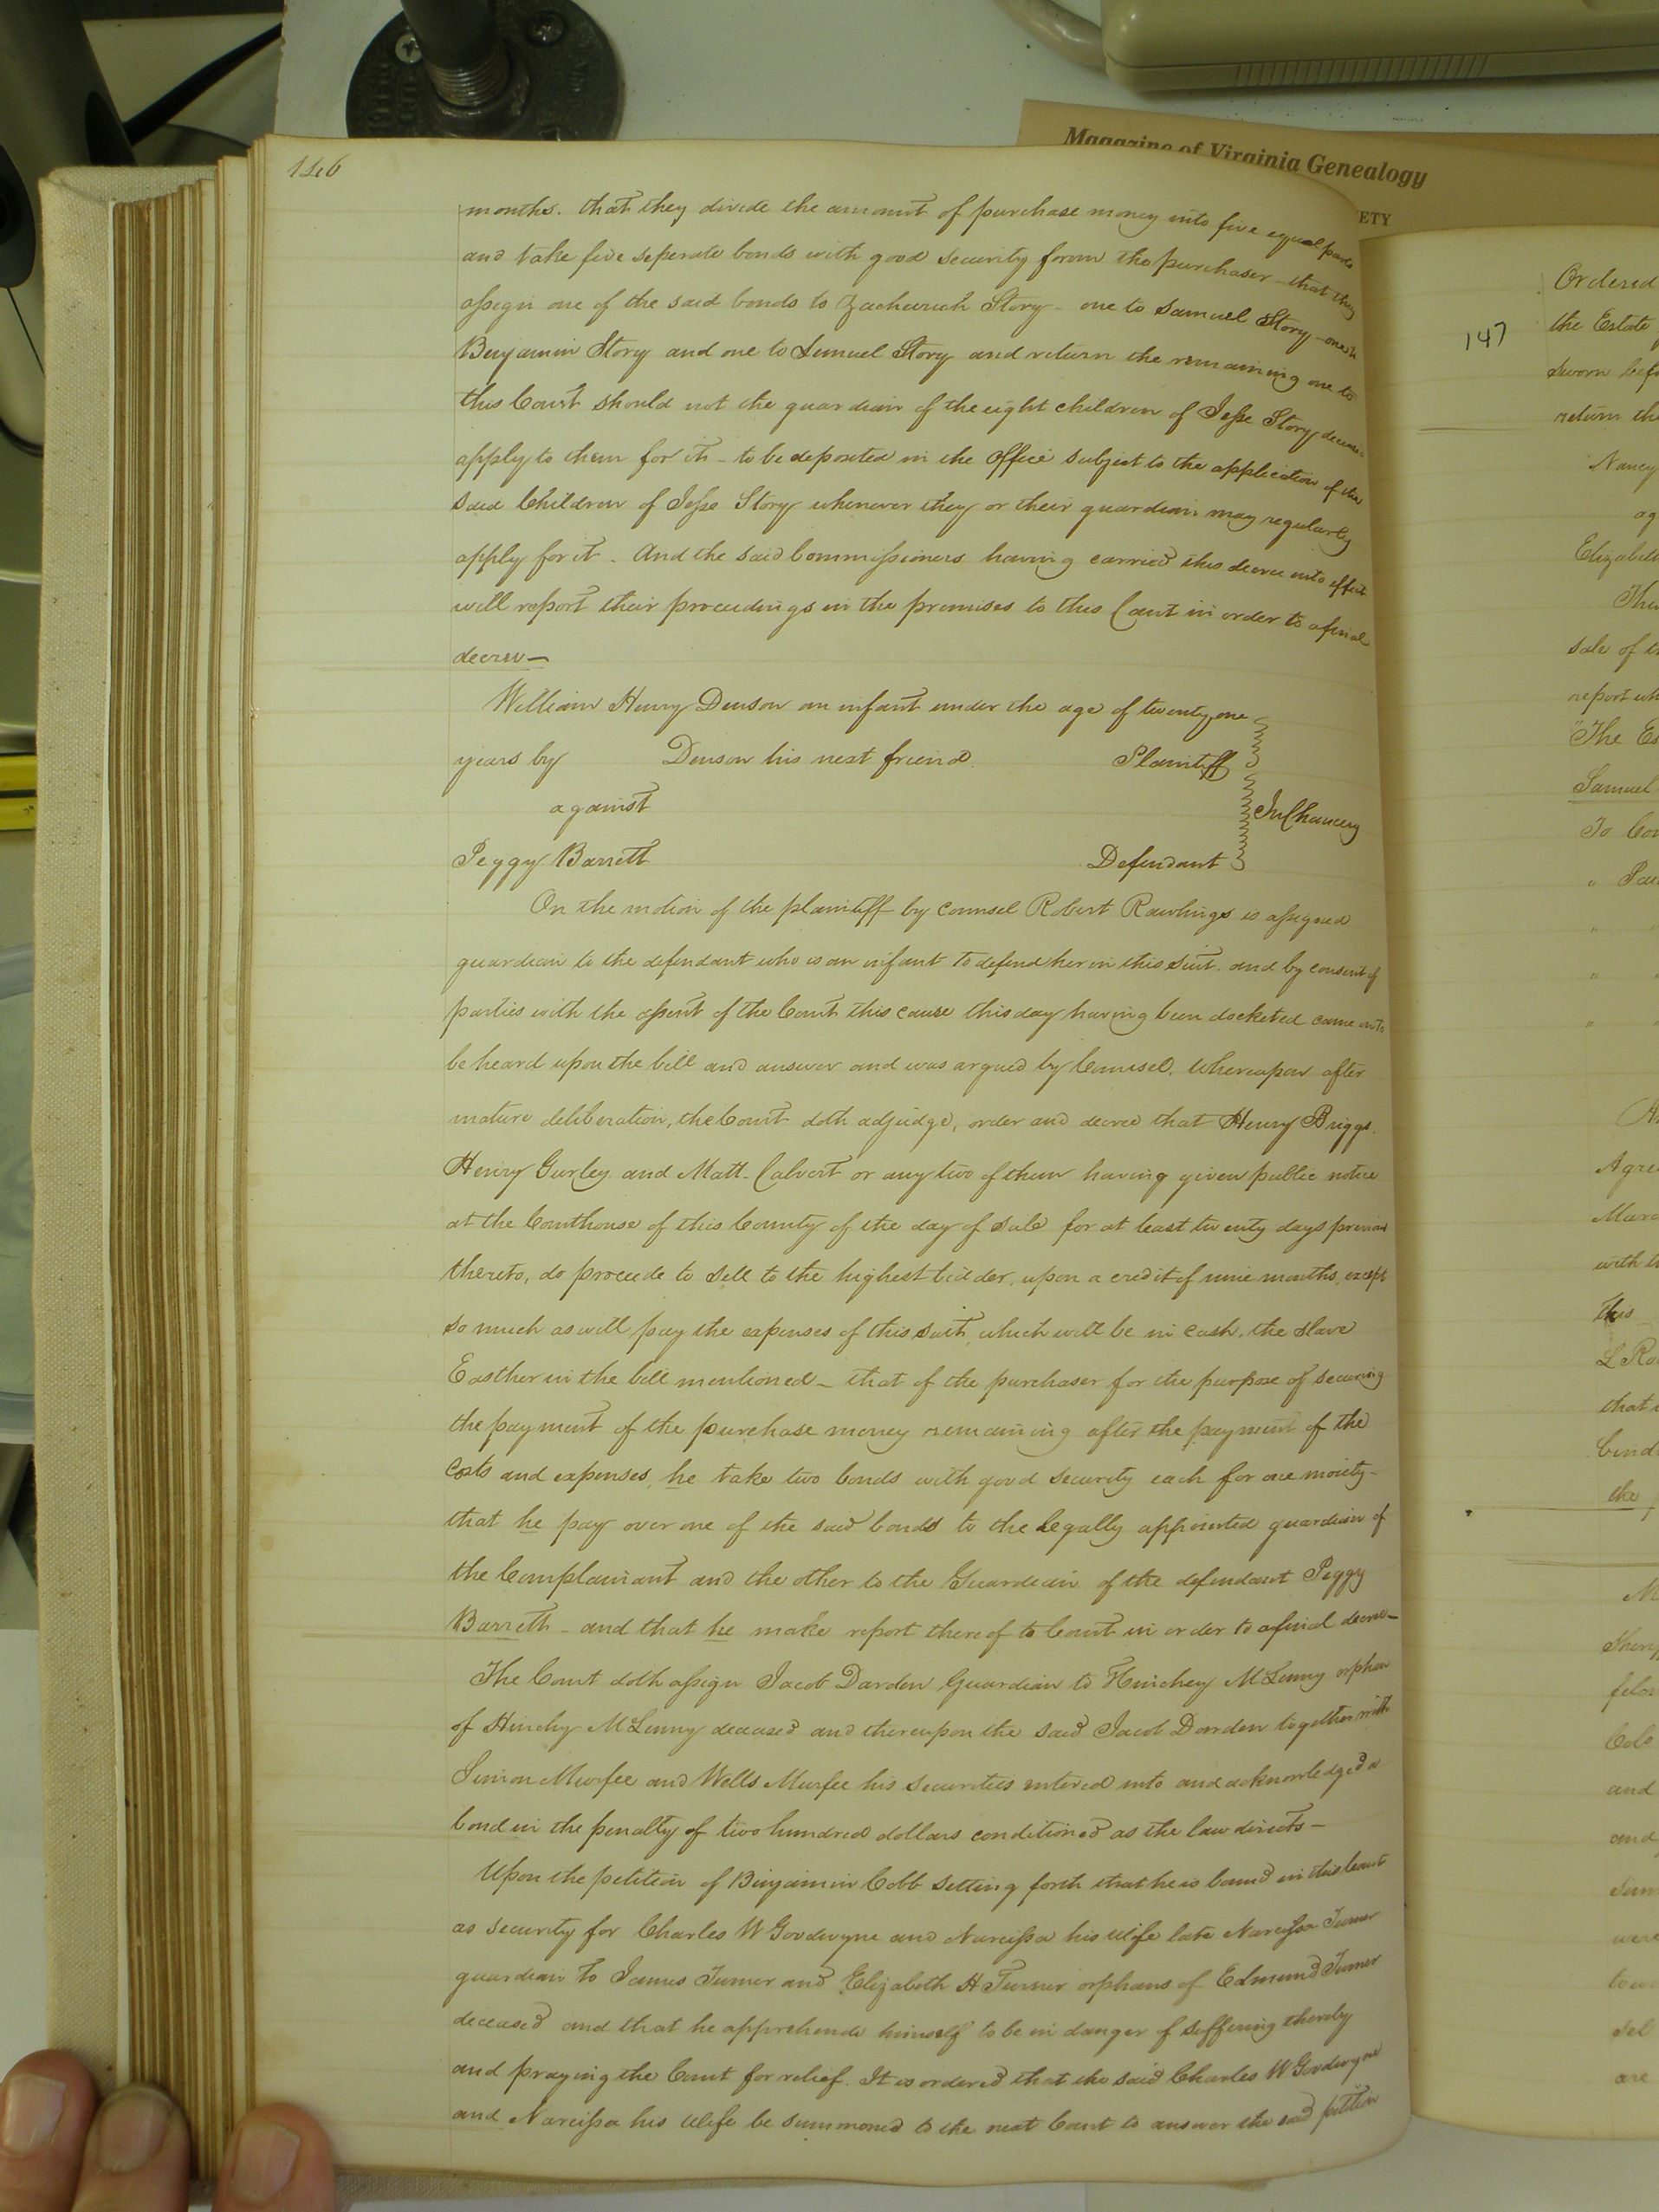 Magazine of Virginia Genealogy
ETY
146
months. that they divide the amount of purchase money into five equal parts
and take five seperate bonds with good security from the purchaser - that they
assign one of the said bonds to Zachariah Story - one to Samuel Story - one to
Benjamin Story and one to Lemuel Story and return the remaining one to
this Court should not the guardian of the eight children of Jesse Story deceased
apply to them for it - to be deposited in the office subject to the application of the
said Children of Jesse Story whenever they or their guardian may regularly
apply for it - And the said Commissioners having carried this decree into effect
will report their proceedings in the premises to this Court in order to a final
decree -
William Henry Denson an infant under the age of twenty one
years by Denson his next friend. Plaintiff
against
In Chancery
Peggy Barrett Defendant
On the motion of the plaintiff by counsel Robert Rawlings is assigned
guardian to the defendant who is an infant to defend her in this suit. and by consent of
parties with the assent of the Court this cause this day having been docketed came on to
be heard upon the bill and answer and was argued by Counsel. Whereupon after
mature deliberation, the Court doth adjudge, order and decree that Henry Briggs.
Henry Gurley and Matt. Calvert or any two of them having given public notice
at the Courthouse of this County of the day of sale for at least twenty days previous
thereto, do proceede to sell to the highest bidder, upon a credit of nine months, except
so much as will pay the expenses of this suit which will be in cash, the slave
Easther in the bill mentioned - that of the purchaser for the purpose of securing
the payment of the purchase money remaining after the payment of the
Costs and expenses, he take two bonds with good security each for one moiety -
that he pay over one of the said bonds to the legally appointed guardian of
the Complainant and the other to the Guardian of the defendant Peggy
Barrett - and that he make report thereof to Court in order to a final decree -
The Court doth assign Jacob Darden Guardian to Hinchey McLenny orphan
of Hinchy McLenny deceased and thereupon the said Jacob Darden together with
Simon Murfee and Wells Murfee his securities entered into and acknowledged a
bond in the penalty of two hundred dollars conditioned as the law directs -
Upon the petition of Binjamin Cobb setting forth that he is bound in this Court
as security for Charles W Goodwyne and Narcissa his Wife late Narcissa Turner
guardian to James Turner and Elizabeth H Turner orphans of Edmund Turner
deceased and that he apprehends himself to be in danger of suffering thereby
and praying the Court for relief. It is ordered that the said Charles W Goodwyne
and Narcissa his Wife be summoned to the next Court to answer the said petition
147
Ordered
the Estate
sworn
return the
Nancy
Elizabeth
sale of
report
"The
Samuel
To
with
this
that
the
and
and
were
are